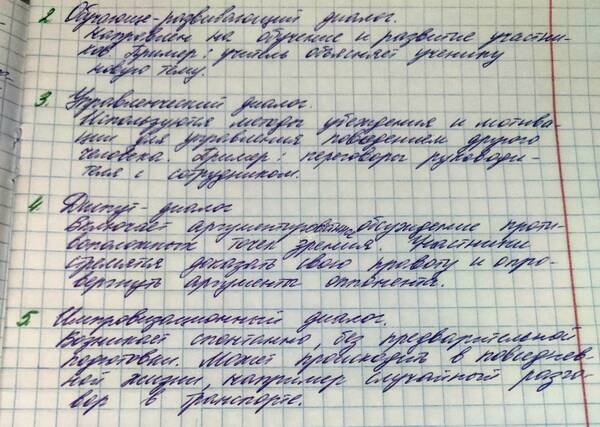 2. Обучающе-развивающий диалог.
Направлен на обучение и развитие участни-
ков. Пример: учитель объясняет ученику
новую тему.
3. Управленческий диалог.
Используются методы убеждения и мотива-
ции для управления поведением другого
человека. Пример: переговоры руководи-
теля с сотрудником.
4. Диспут-диалог
Включает аргументированное обсуждение проти-
воположных точек зрения. Участники
стремятся доказать свою правоту и опро-
вергнуть аргументы оппонента.
5. Импровизационный диалог.
Возникает спонтанно, без предварительной
подготовки. Может происходить в повседнев-
ной жизни, например случайный разго-
вор в транспорте.